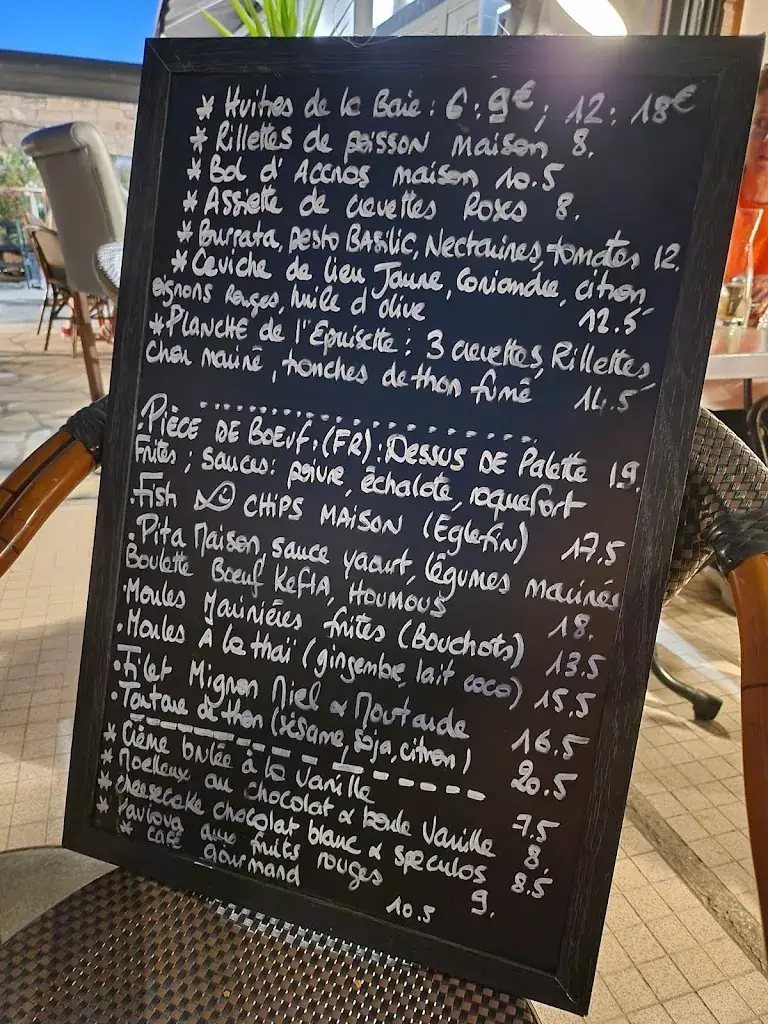 * Huîtres de la Baie : 6 : 9€ ; 12 : 18€
* Rillettes de poisson maison 8.
* Bol d'Accras maison 10.5
* Assiette de crevettes Roses 8.
* Burrata, pesto BASILIC, Nectarines, tomates 12.
* Ceviche de lieu Jaune, Coriandre, citron,
oignons Rouges, huile d'olive 12.5
* PLANCHE de l'Epuisette : 3 crevettes, Rillettes,
chou mariné, tranches de thon fumé 14.5
. PIÈCE DE BOEUF. (FR) : DESSUS DE Palette 19.
Frites ; sauces : poivre, échalote, roquefort
. Fish CHIPS MAISON (Eglefin) 17.5
. Pita Maison, sauce yaourt, légumes marinés
Boulette Boeuf KEFTA, HOUMOUS 18.
. Moules Marinières frites (Bouchots) 13.5
. Moules A la thaï (gingembre, lait coco) 15.5
. Filet Mignon Miel & Moutarde 16.5
. Tartare de thon (sésame, soja, citron) 20.5
* Crème brûlée à la Vanille 7.5
* Moelleux au chocolat & boule Vanille 8.
* cheesecake chocolat blanc & speculos 8.5
* Pavlova aux fruits rouges 9.
* café gourmand 10.5